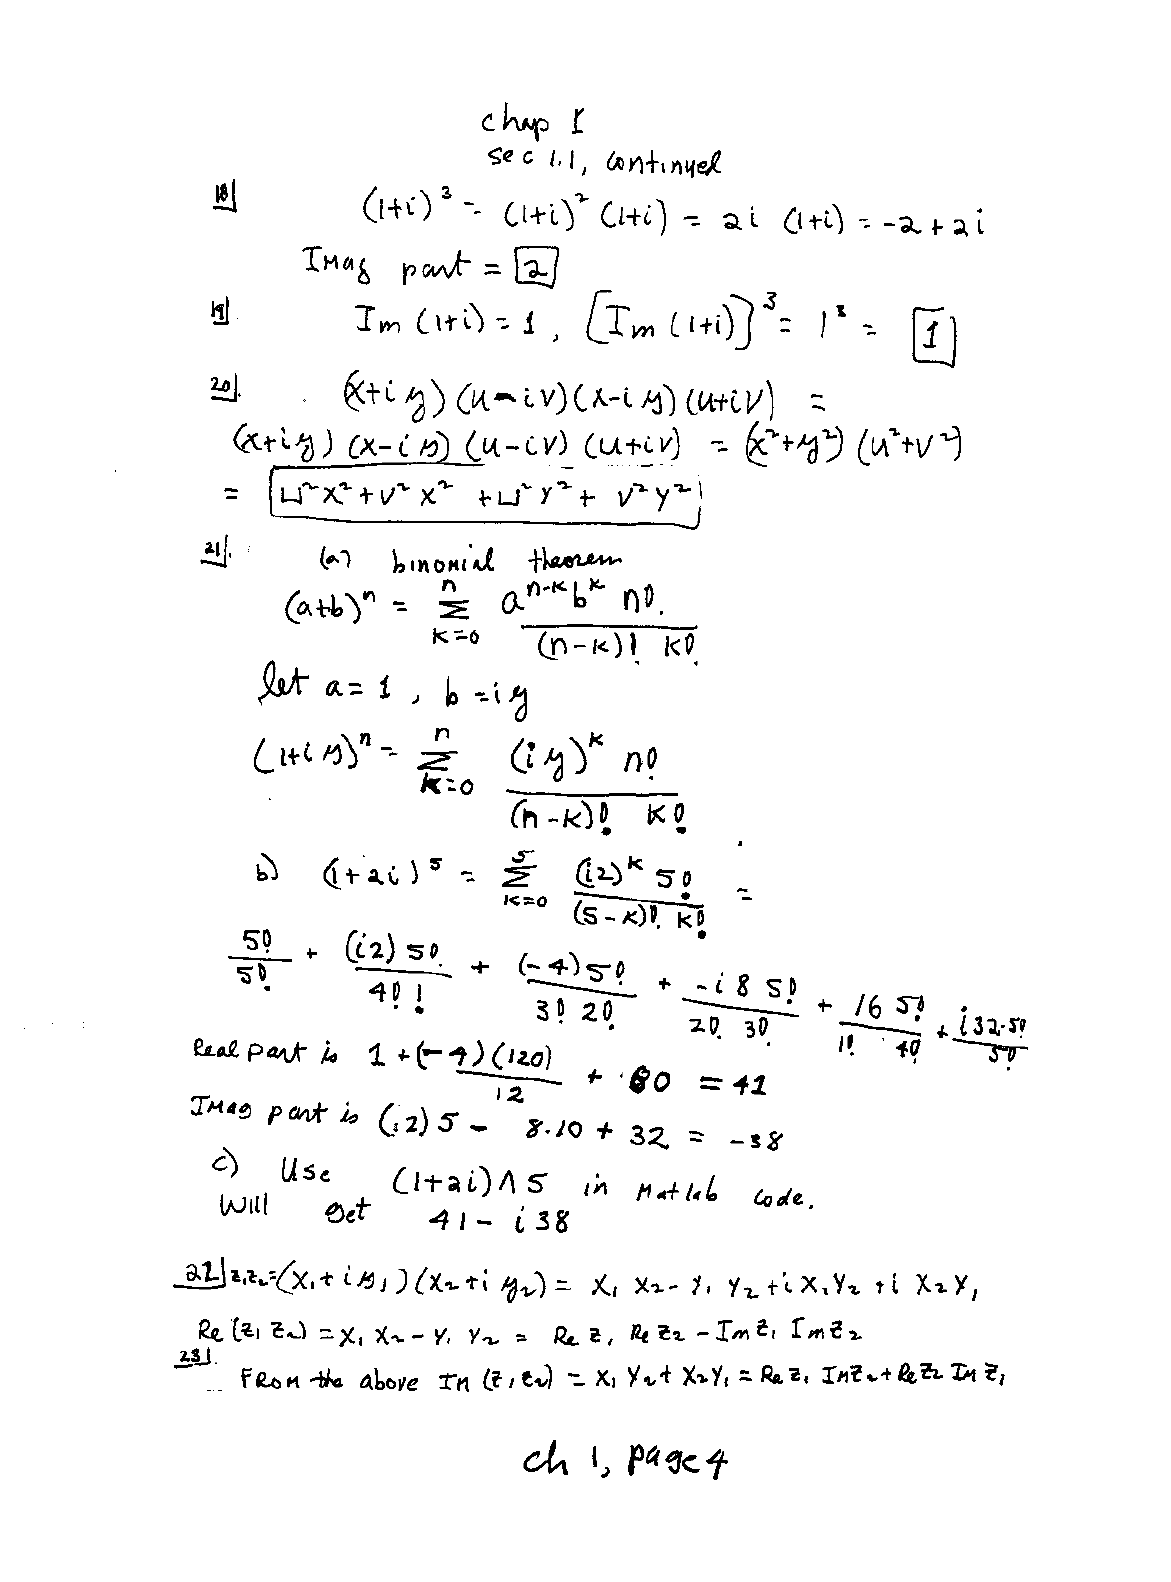 chap 1
sec 1.1, continued
18] (1+i)³ = (1+i)² (1+i) = 2i (1+i) = -2+2i
Imag part = 2
19] Im (1+i) = 1, [Im (1+i)]³ = 1³ = 1
20]. (x+iy)(u-iv)(x-iy)(u+iv) =
(x+iy)(x-iy)(u-iv)(u+iv) = (x²+y²)(u²+v²)
= u²x²+v²x²+u²y²+v²y²
21]. (a) binomial theorem
(a+b)ⁿ = Σ_{k=0}^{n} a^{n-k} b^k n! / (n-k)! k!
let a = 1, b = iy
(1+iy)ⁿ = Σ_{k=0}^{n} (iy)^k n! / (n-k)! k!
b) (1+2i)⁵ = Σ_{k=0}^{5} (i2)^k 5! / (5-k)! k! =
5!/5! + (i2) 5!/4! ! + (-4) 5!/3! 2! + -i 8 5!/2! 3! + 16 5!/1! 4! + i 32·5!/5!
Real part is 1 + (-4)(120)/12 + 80 = 41
Imag part is (2) 5 - 8·10 + 32 = -38
c) Use (1+2i)∧5 in Matlab code.
Will get 41 - i 38
22] z₁z₂ = (x₁+iy₁)(x₂+iy₂) = x₁x₂ - y₁y₂ + i x₁y₂ + i x₂y₁
Re (z₁z₂) = x₁x₂ - y₁y₂ = Re z₁ Re z₂ - Im z₁ Im z₂
23].
From the above Im (z₁z₂) = x₁y₂ + x₂y₁ = Re z₁ Im z₂ + Re z₂ Im z₁
ch 1, page 4